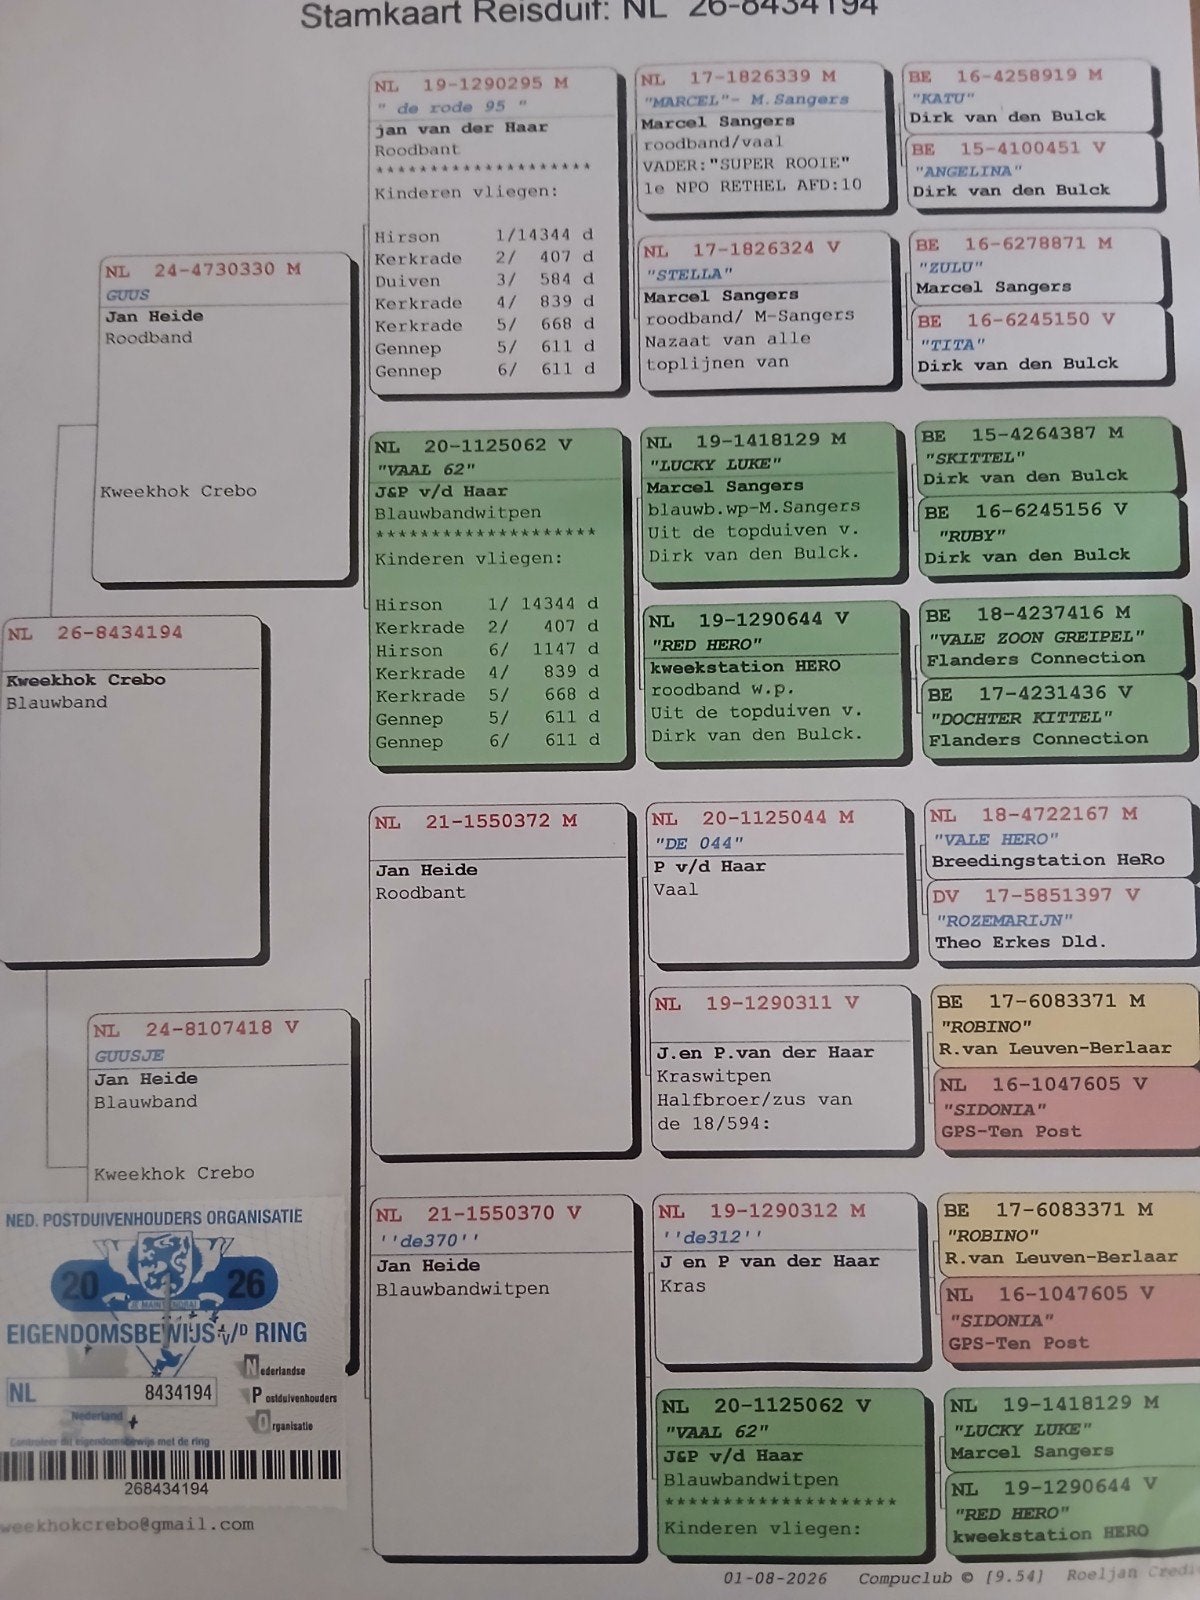 Stamkaart Reisduif: NL 26-8434194
NL 26-8434194
Kweekhok Crebo
Blauwband
NL 24-4730330 M
GUUS
Jan Heide
Roodband
Kweekhok Crebo
NL 24-8107418 V
GUUSJE
Jan Heide
Blauwband
Kweekhok Crebo
NL 19-1290295 M
" de rode 95 "
jan van der Haar
Roodbant
*******************
Kinderen vliegen:
Hirson 1/14344 d
Kerkrade 2/ 407 d
Duiven 3/ 584 d
Kerkrade 4/ 839 d
Kerkrade 5/ 668 d
Gennep 5/ 611 d
Gennep 6/ 611 d
NL 20-1125062 V
"VAAL 62"
J&P v/d Haar
Blauwbandwitpen
********************
Kinderen vliegen:
Hirson 1/ 14344 d
Kerkrade 2/ 407 d
Hirson 6/ 1147 d
Kerkrade 4/ 839 d
Kerkrade 5/ 668 d
Gennep 5/ 611 d
Gennep 6/ 611 d
NL 21-1550372 M
Jan Heide
Roodbant
NL 21-1550370 V
''de370''
Jan Heide
Blauwbandwitpen
NL 17-1826339 M
"MARCEL"- M.Sangers
Marcel Sangers
roodband/vaal
VADER:"SUPER ROOIE"
1e NPO RETHEL AFD:10
NL 17-1826324 V
"STELLA"
Marcel Sangers
roodband/ M-Sangers
Nazaat van alle
toplijnen van
NL 19-1418129 M
"LUCKY LUKE"
Marcel Sangers
blauwb.wp-M.Sangers
Uit de topduiven v.
Dirk van den Bulck.
NL 19-1290644 V
"RED HERO"
kweekstation HERO
roodband w.p.
Uit de topduiven v.
Dirk van den Bulck.
NL 20-1125044 M
"DE 044"
P v/d Haar
Vaal
NL 19-1290311 V
J.en P.van der Haar
Kraswitpen
Halfbroer/zus van
de 18/594:
NL 19-1290312 M
''de312''
J en P van der Haar
Kras
NL 20-1125062 V
"VAAL 62"
J&P v/d Haar
Blauwbandwitpen
*********************
Kinderen vliegen:
BE 16-4258919 M
"KATU"
Dirk van den Bulck
BE 15-4100451 V
"ANGELINA"
Dirk van den Bulck
BE 16-6278871 M
"ZULU"
Marcel Sangers
BE 16-6245150 V
"TITA"
Dirk van den Bulck
BE 15-4264387 M
"SKITTEL"
Dirk van den Bulck
BE 16-6245156 V
"RUBY"
Dirk van den Bulck
BE 18-4237416 M
"VALE ZOON GREIPEL"
Flanders Connection
BE 17-4231436 V
"DOCHTER KITTEL"
Flanders Connection
NL 18-4722167 M
"VALE HERO"
Breedingstation HeRo
DV 17-5851397 V
"ROZEMARIJN"
Theo Erkes Dld.
BE 17-6083371 M
"ROBINO"
R.van Leuven-Berlaar
NL 16-1047605 V
"SIDONIA"
GPS-Ten Post
BE 17-6083371 M
"ROBINO"
R.van Leuven-Berlaar
NL 16-1047605 V
"SIDONIA"
GPS-Ten Post
NL 19-1418129 M
"LUCKY LUKE"
Marcel Sangers
NL 19-1290644 V
"RED HERO"
kweekstation HERO
NED. POSTDUIVENHOUDERS ORGANISATIE
20 26
EIGENDOMSBEWIJS V/D RING
NL 8434194
Nederland
Nederlandse
Postduivenhouders
Organisatie
Controleer dit eigendomsbewijs met de ring
268434194
weekhokcrebo@gmail.com
01-08-2026 Compuclub © [9.54] Roeljan